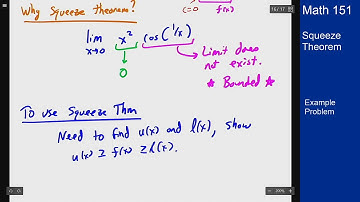 Why Squeeze theorem?
c=0 f(x)
lim x² cos(1/x)
x→0
0
Limit does
not exist.
★ Bounded ★
To use Squeeze Thm
Need to find u(x) and l(x), show
u(x) ≥ f(x) ≥ l(x).
16 / 17
200%
Math 151
Squeeze
Theorem
Example
Problem